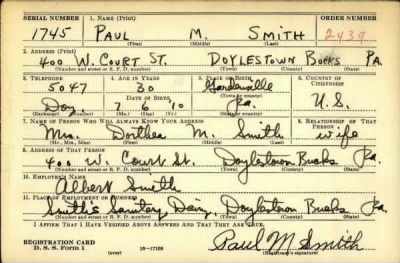 SERIAL NUMBER 1. NAME (Print) ORDER NUMBER
1745 PAUL M. SMITH 2439
(First) (Middle) (Last)
2. ADDRESS (Print)
400 W. COURT ST. DOYLESTOWN BUCKS PA.
(Number and street or R. F. D. number) (Town) (County) (State)
3. TELEPHONE 4. AGE IN YEARS 5. PLACE OF BIRTH 6. COUNTRY OF CITIZENSHIP
5047 30 Gardenville
DATE OF BIRTH (Town or county)
Doy. 7 6 10 Pa. U.S.
(Exchange) (Number) (Mo.) (Day) (Yr.) (State or country)
7. NAME OF PERSON WHO WILL ALWAYS KNOW YOUR ADDRESS 8. RELATIONSHIP OF THAT PERSON
Mrs. Dorthea M. Smith wife
(Mr., Mrs., Miss) (First) (Middle) (Last)
9. ADDRESS OF THAT PERSON
400 W. Court St. Doylestown Bucks Pa.
(Number and street or R. F. D. number) (Town) (County) (State)
10. EMPLOYER'S NAME
Albert Smith
11. PLACE OF EMPLOYMENT OR BUSINESS
Smith's Sanitary Dairy, Doylestown Bucks Pa.
(Number and street or R. F. D. number) (Town) (County) (State)
I AFFIRM THAT I HAVE VERIFIED ABOVE ANSWERS AND THAT THEY ARE TRUE.
REGISTRATION CARD
D. S. S. Form 1 (over) 16-17105 Paul M Smith
(Registrant's signature)